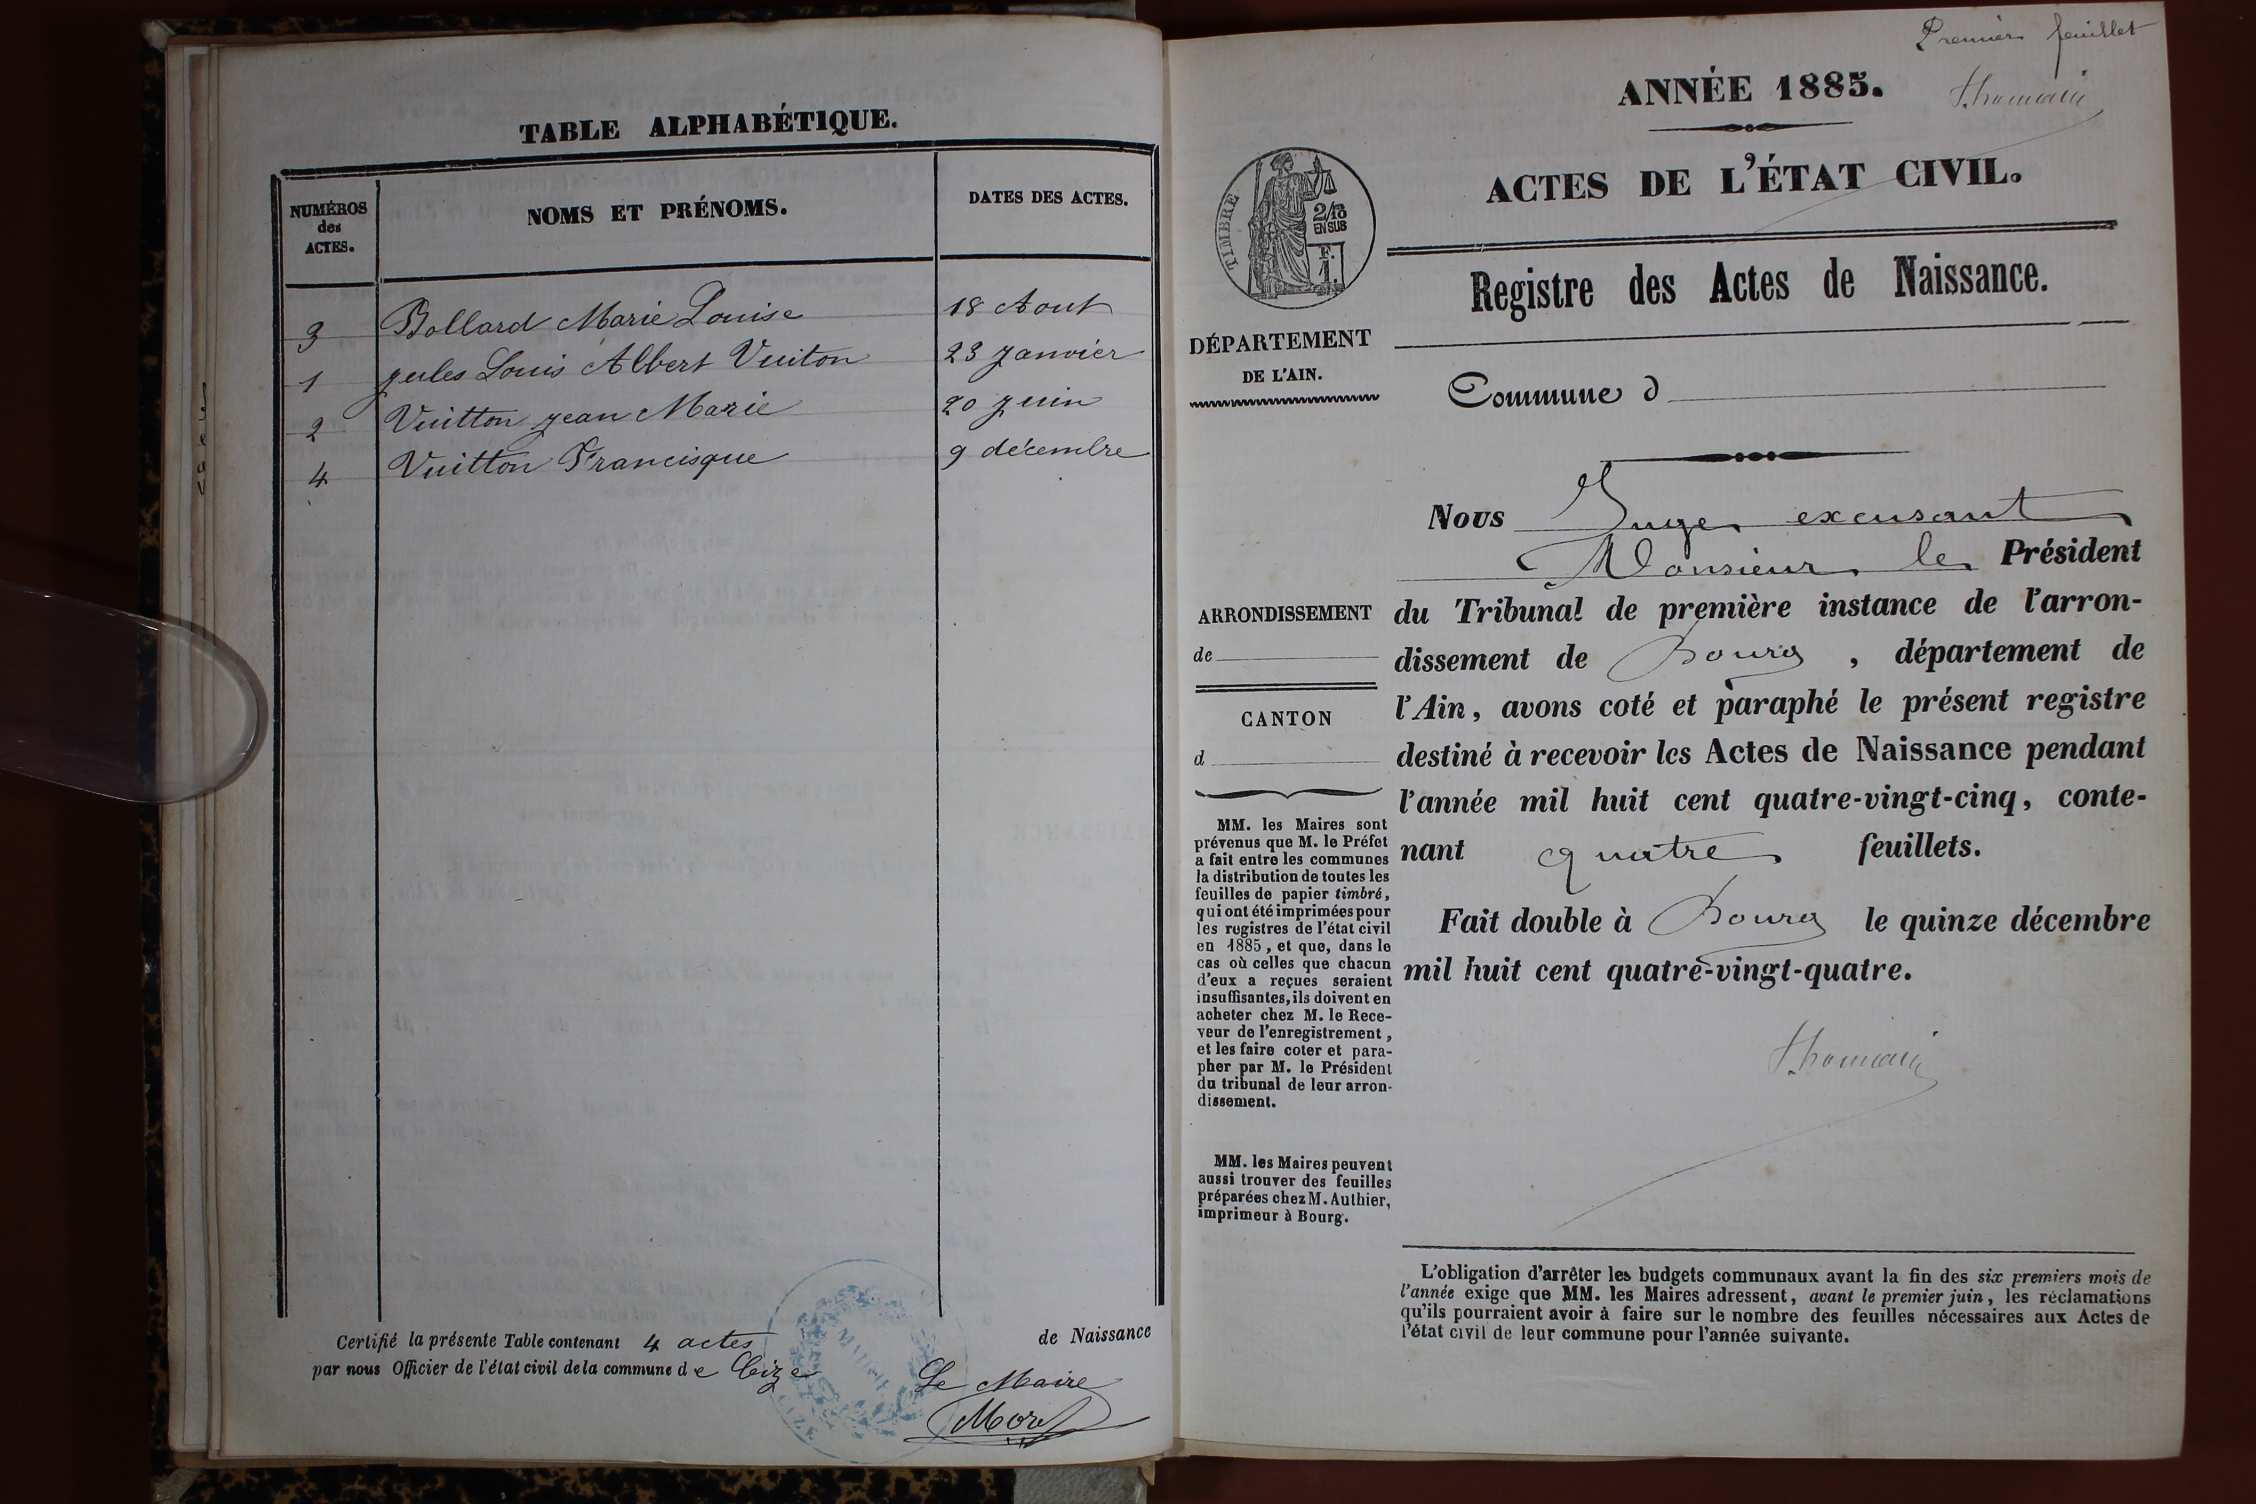 TABLE ALPHABÉTIQUE.
NUMÉROS
des
ACTES.
NOMS ET PRÉNOMS.
DATES DES ACTES.
3 Bollard Marie Louise 18 Aout
1 jules Louis Albert Vuiton 23 janvier
2 Vuitton jean Marie 20 juin
4 Vuitton Francisque 9 décembre
Certifié la présente Table contenant 4 actes de Naissance
par nous Officier de l'état civil de la commune de Cize
Le Maire
Morel
MAIRIE
CIZE
Premier feuillet
Thomain
ANNÉE 1885.
ACTES DE L'ÉTAT CIVIL.
TIMBRE
2/10
EN SUS
F.
1.
Registre des Actes de Naissance.
DÉPARTEMENT
DE L'AIN.
Commune d
Nous Juge excusant
Monsieur le Président
du Tribunal de première instance de l'arron-
dissement de Bourg, département de
l'Ain, avons coté et paraphé le présent registre
destiné à recevoir les Actes de Naissance pendant
l'année mil huit cent quatre-vingt-cinq, conte-
nant quatre feuillets.
Fait double à Bourg le quinze décembre
mil huit cent quatre-vingt-quatre.
Thomain
ARRONDISSEMENT
de
CANTON
d
MM. les Maires sont
prévenus que M. le Préfet
a fait entre les communes
la distribution de toutes les
feuilles de papier timbré,
qui ont été imprimées pour
les registres de l'état civil
en 1885, et que, dans le
cas où celles que chacun
d'eux a reçues seraient
insuffisantes, ils doivent en
acheter chez M. le Rece-
veur de l'enregistrement,
et les faire coter et para-
pher par M. le Président
du tribunal de leur arron-
dissement.
MM. les Maires peuvent
aussi trouver des feuilles
préparées chez M. Authier,
imprimeur à Bourg.
L'obligation d'arrêter les budgets communaux avant la fin des six premiers mois de
l'année exige que MM. les Maires adressent, avant le premier juin, les réclamations
qu'ils pourraient avoir à faire sur le nombre des feuilles nécessaires aux Actes de
l'état civil de leur commune pour l'année suivante.